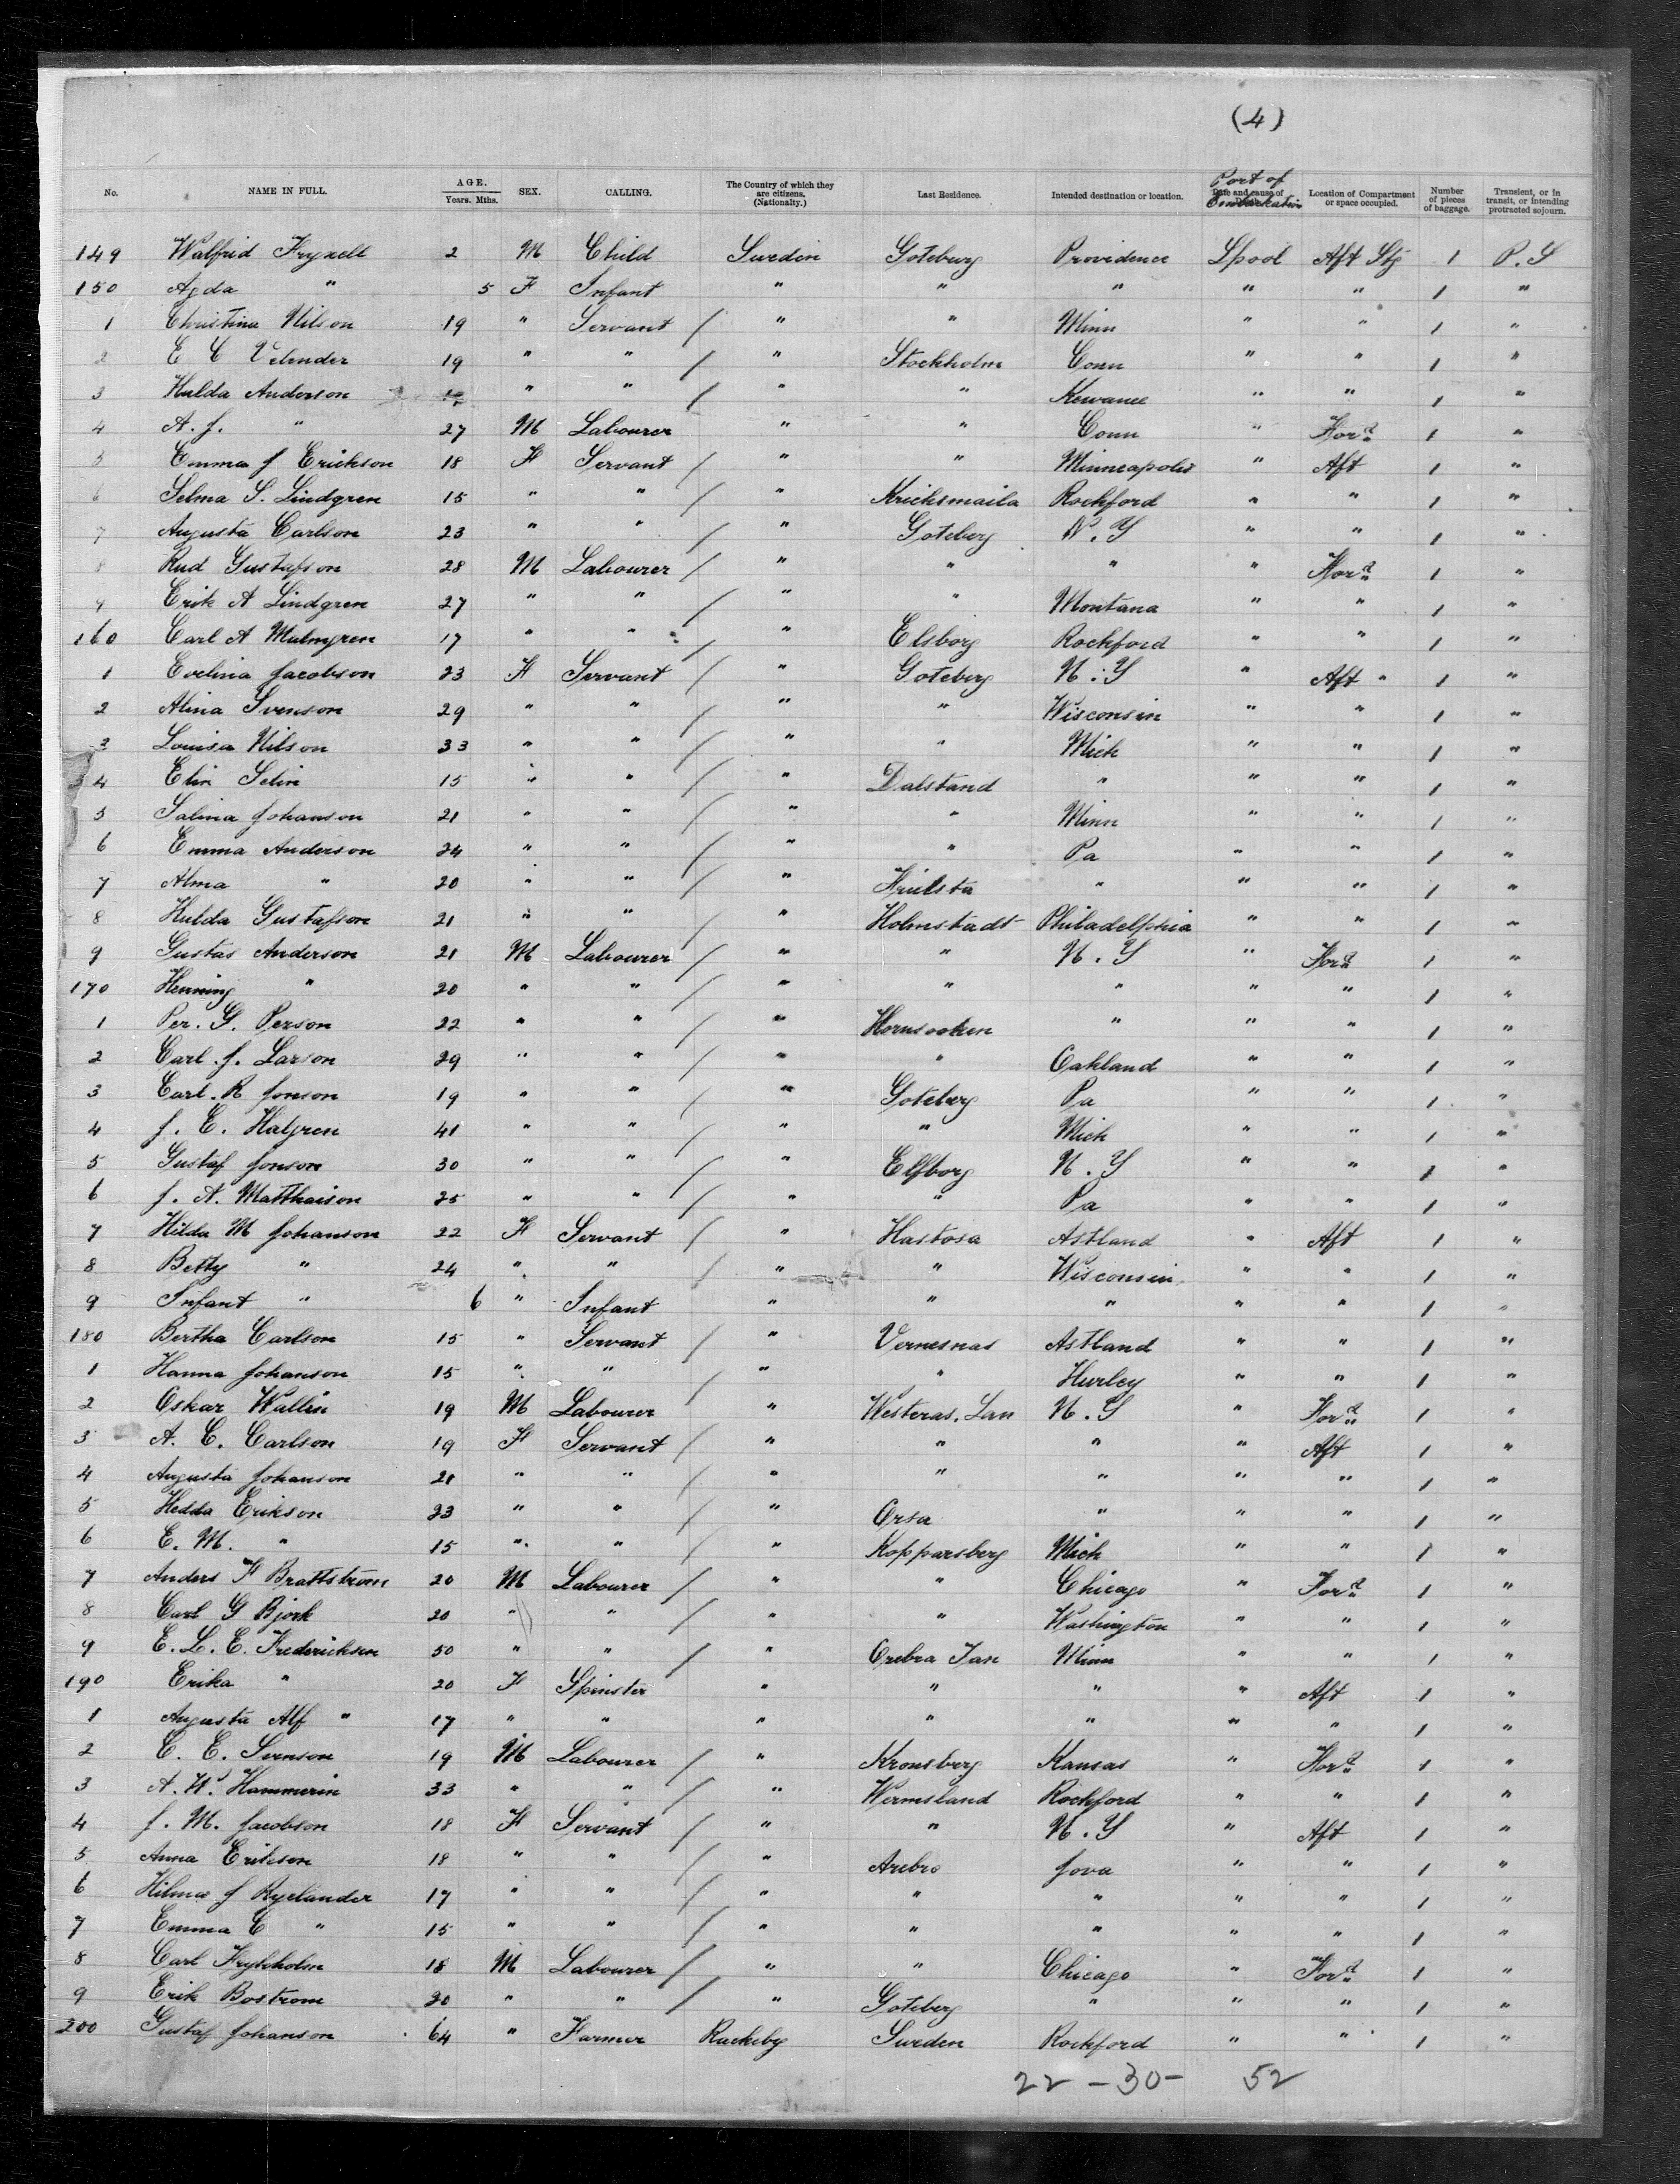 (4)
No. NAME IN FULL. AGE. Years. Mths. SEX. CALLING. The Country of which they are citizens. (Nationality.) Last Residence. Intended destination or location. Port of Embarkation Location of Compartment or space occupied. Number of pieces of baggage. Transient, or in transit, or intending protracted sojourn.
149 Walfrid Fryxell 2 M Child Sweden Goteburg Providence Lpool Aft Stg 1 P.S
150 Agda " 5 F Infant " " " " " 1 "
1 Christina Nilson 19 " Servant / " " Minn " " 1 "
2 E C Velender 19 " " / " Stockholm Conn " " 1 "
3 Hulda Anderson " " / " " Kewanee " " 1 "
4 A. J. " 27 M Labourer " " Conn " Ford 1 "
5 Emma J Erickson 18 F Servant / " " Minneapolis " Aft 1 "
6 Selma S. Lindgren 15 " " / " Krichsmaila Rockford " " 1 "
7 Augusta Carlson 23 " " / " Goteberg N.Y " " 1 "
8 Rud Gustafson 28 M Labourer / " " " " Ford 1 "
9 Erik A Lindgren 27 " " / " " Montana " " 1 "
160 Carl A Malmgren 17 " " / " Elsborg Rockford " " 1 "
1 Evelina Jacobson 23 F Servant / " Goteberg N.Y " Aft " 1 "
2 Alina Svenson 29 " " / " " Wisconsin " " 1 "
3 Louisa Nilson 33 " " / " " Mich " " 1 "
4 Elin Selin 15 " " / " Dalstand " " " 1 "
5 Salina Johanson 21 " " / " " Minn " " 1 "
6 Emma Anderson 24 " " / " " Pa " " 1 "
7 Alma " 20 " " / " " " " 1 "
8 Hulda Gustafson 21 " " / " Holmstadt Philadelphia " " 1 "
9 Gustas Anderson 21 M Labourer / " " N.Y " Ford 1 "
170 Henning " 20 " " / " " " " " 1 "
1 Per. G. Person 22 " " / " " " " 1 "
2 Carl. J. Larson 29 " " / " " Oakland " " 1 "
3 Carl. R Jonson 19 " " / " Goteburg Pa " " 1 "
4 J. E. Halgren 41 " " / " " Mich " " 1 "
5 Gustaf Jonson 30 " " / " Elfborg N.Y " " 1 "
6 J. A. Matthaison 25 " " / " " Pa " " 1 "
7 Hilda M Johanson 22 F Servant / " Hastosa Astland " Aft 1 "
8 Betty " 24 " " / " " Wisconsin " " 1 "
9 Infant " 6 " Infant " " " " " 1 "
180 Bertha Carlson 15 " Servant / " Vernesnas Astland " " 1 "
1 Hanna Johanson 15 " " / " " Hurley " " 1 "
2 Oskar Wallin 19 M Labourer " Westeras. Lan N.Y " Ford 1 "
3 A. C. Carlson 19 F Servant / " " " " Aft 1 "
4 Augusta Johanson 21 " " / " " " " " 1 "
5 Hedda Erikson 23 " " / " Orsa " " " 1 "
6 E. M. " 15 " " / " Kopparsberg Mich " " 1 "
7 Anders F Brattstrom 20 M Labourer / " " Chicago " Ford 1 "
8 Carl G Bjork 20 " " / " " Washington " " 1 "
9 E. L. E. Frederickson 50 " " / " Orebra Lan Minn " " 1 "
190 Erika " 20 F Spinster " " " " Aft 1 "
1 Augusta Alf " 17 " " " " " " " 1 "
2 C. E. Svenson 19 M Labourer / " Kronsberg Kansas " Ford 1 "
3 A. W. Hammerin 33 " " / " Wermsland Rockford " " 1 "
4 J. M. Jacobson 18 F Servant / " " N.Y " Aft 1 "
5 Anna Erikson 18 " " / " Arebro Jova " " 1 "
6 Hilma J Ryelander 17 " " / " " " " " 1 "
7 Emma C " 15 " " / " " " " " 1 "
8 Carl Frykholm 18 M Labourer / " " Chicago " Ford 1 "
9 Erik Bostrom 20 " " / " Goteberg " " " 1 "
200 Gustaf Johanson 64 " Farmer Rackeby Sweden Rockford " " 1 "
22 - 30 - 52